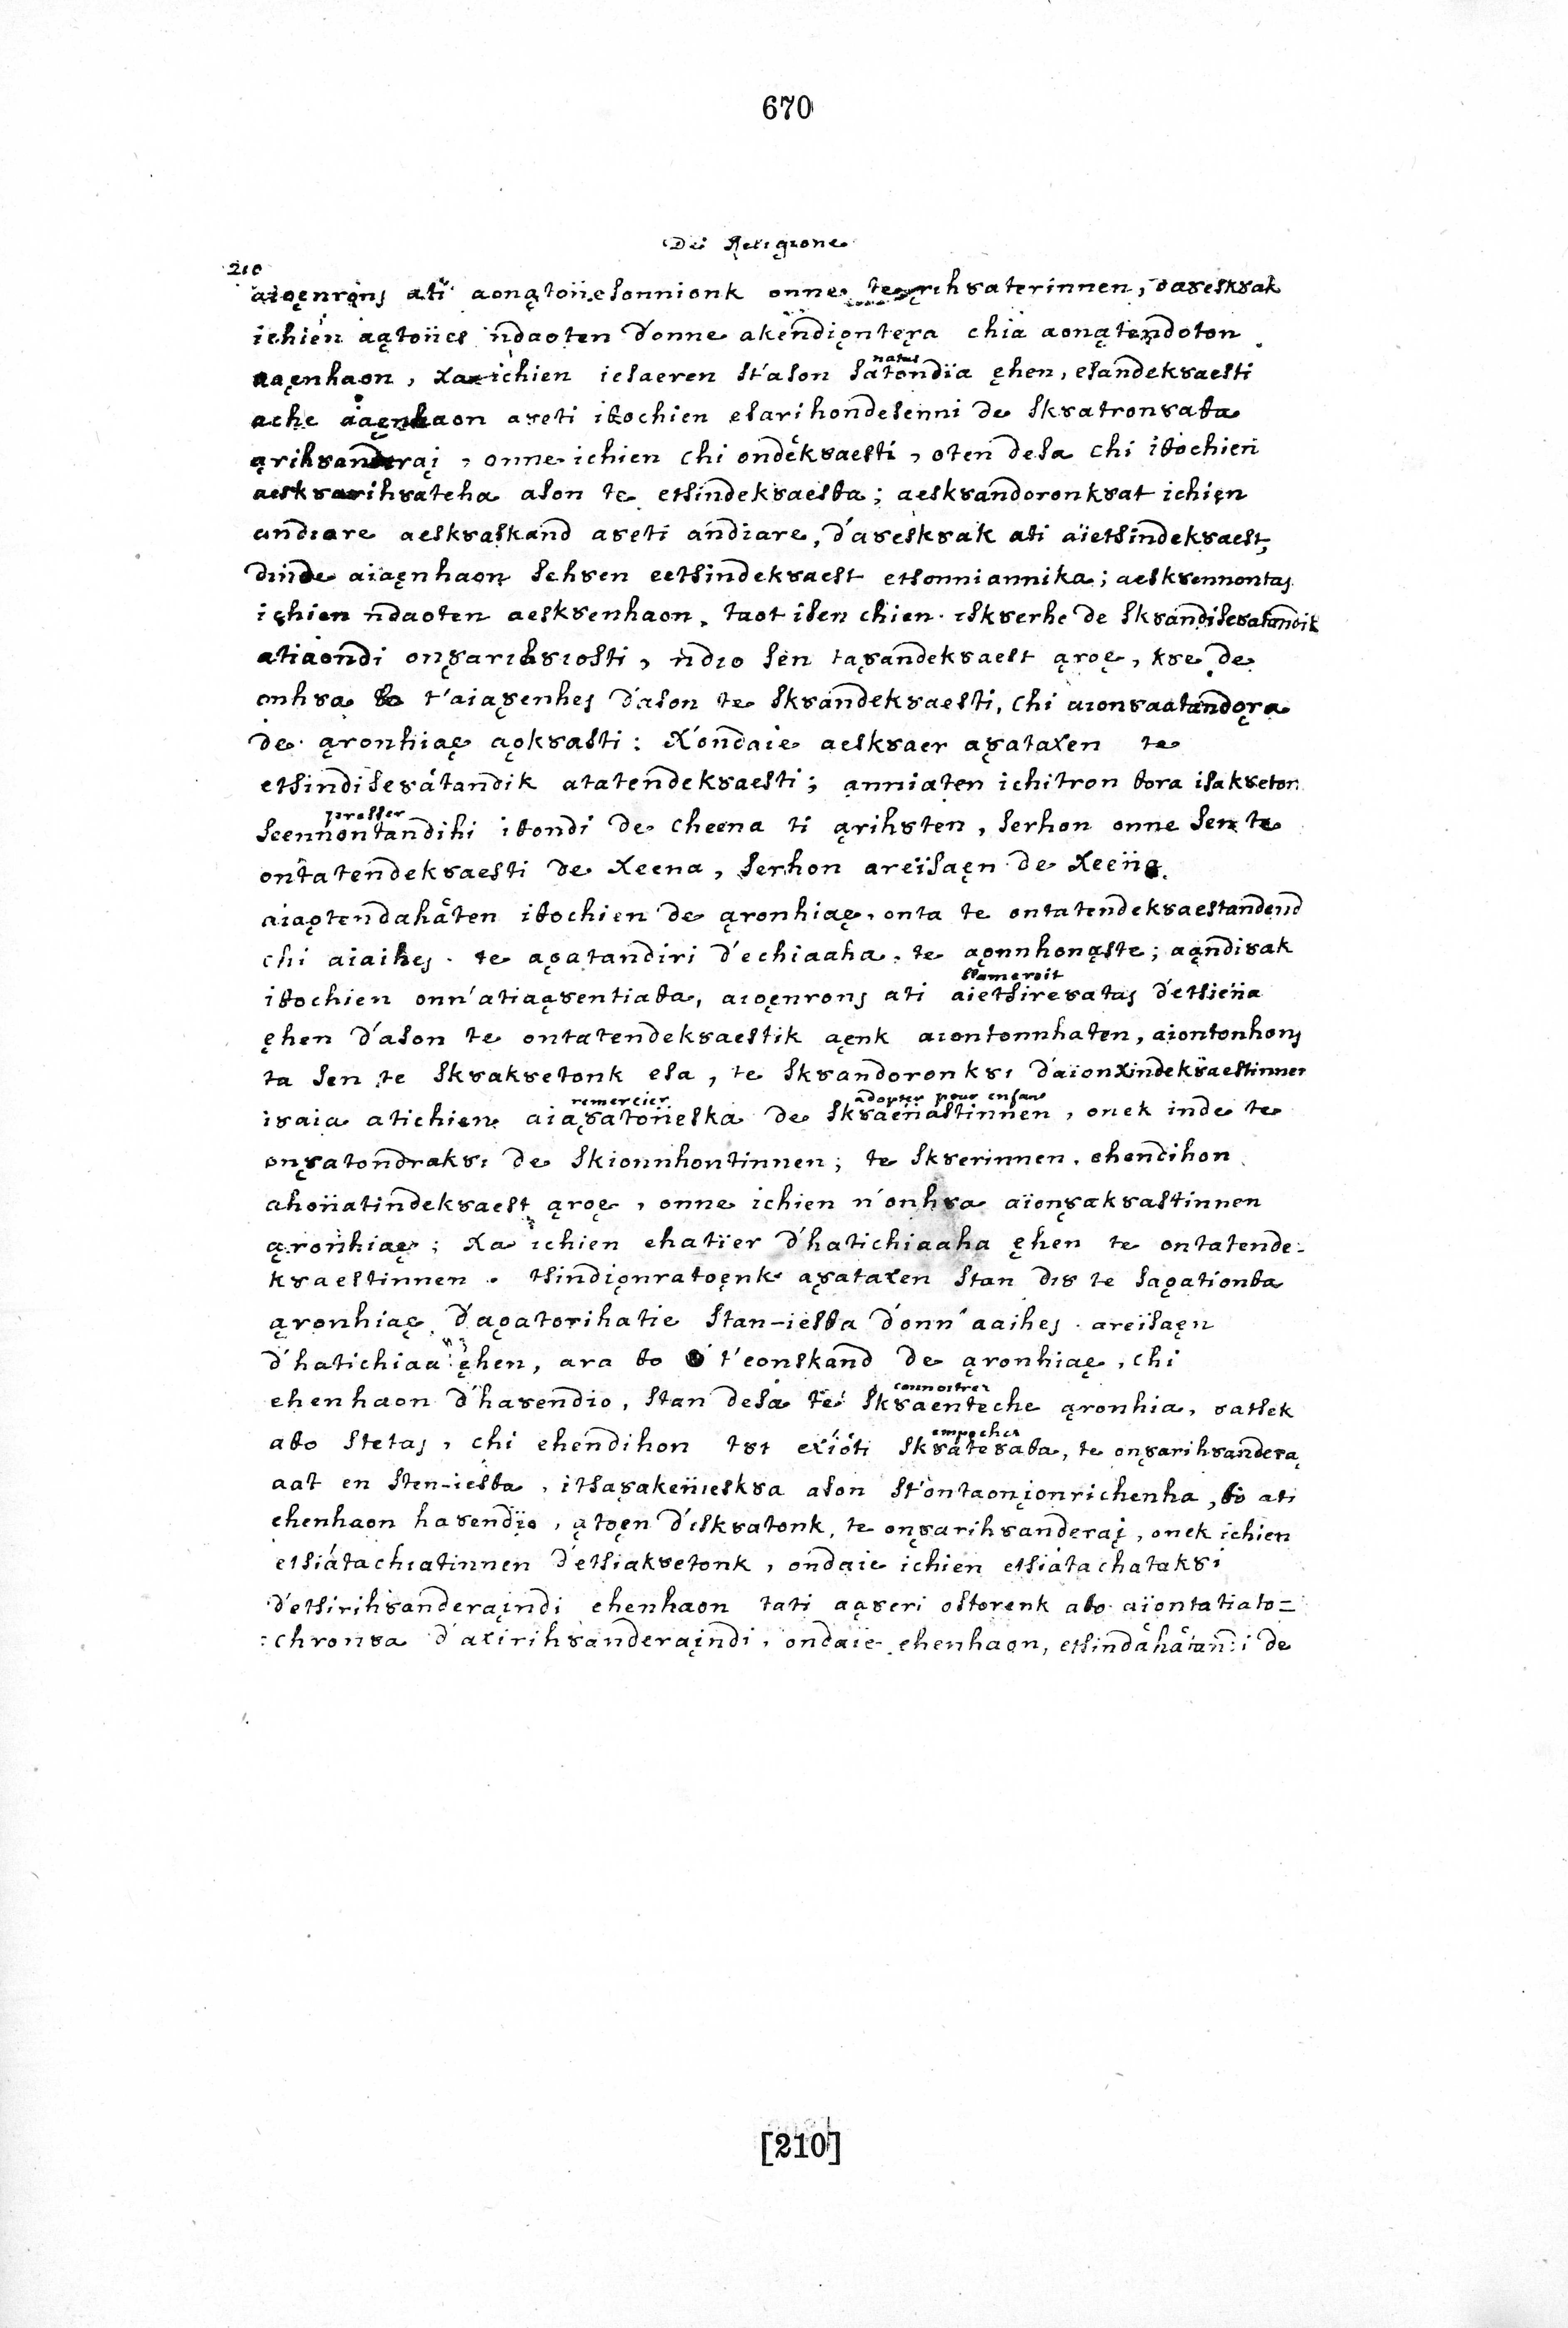 670
De Religione
210
aioęnrons ati aonątoïiesonnionk onne te ȣaterinnen, daȣeskȣak
ichien aątoiies ñdaoten d'onne akendięntęra chia aonątendoton
aaęnhaon, xa ichien iesaeren st'ason satondïa ęhen, esandekȣaesti
natus
ache aaęnhaon aȣeti iθochien esarihondesenni de skȣatronȣaθa
ąrihȣanderaį, onne ichien chi ondekȣaesti, oten desa chi iθochien
aeskȣarihȣateha ason te etsindekȣaesθa; aeskȣandoronkȣat ichien
andiare aeskȣaskand aȣeti andiare, d'aȣeskȣak ati aïetsindekȣaest,
dinde aiaęnhaon sehȣen eetsindekȣaest etsonniannika; aeskȣennontas
ichien ñdaoten aeskȣenhaon. taot isen chien iskȣerhe de skȣandiseȣatandik
atiaondi onȣarihȣiosti, ñdio sen taȣandekȣaest ąroę, kȣe de
onhȣa θo t'aiaȣenhes d'ason te skȣandekȣaesti, chi aionȣaatandora
de ąronhiaę aǫkȣasti: x'ondaie aeskȣaer aȣataxen te
etsindiseȣatandik atatendekȣaesti; anniaten ichitron θora isakȣeton
presser
seennontandihi iθondi de cheena ti ąrihȣten, serhon onne sen te
ontatendekȣaesti de xeena, serhon areïsaęn de xeena
aiaǫtendahaten iθochien de ąronhiaę, onta te ontatendekȣaestandend
chi aiaihes. te aǫatandiri d'echiaaha. te aǫnnhonąste; aąndiȣak
blameroit
iθochien onn'atiaąȣentiaθa, aioęnrons ati aietsireȣatas d'etsiena
ęhen d'ason te ontatendekȣaestik aęnk aiontonnhaten, aiontonhons
ta sen te skȣakȣetonk esa, te skȣandoronkȣi d'aionxindekȣaestinnen
remercier adopter pour enfant
iȣaia atichien aiaȣatoïieska de skȣaenastinnen, onek inde te
onȣatondrakȣi de skionnhontinnen; te skȣerinnen. ehendihon
ahonatindekȣaest ąroę, onne ichien n'onhȣa aïonȣakȣastinnen
ąronhiaę; xa ichien ehatïer d'hatichiaaha ęhen te ontatende-
kȣaestinnen. tsindiǫnratoęnk aȣataxen stan diȣ te saǫationθa
ąronhiaę d'aǫatorihatie stan-iesθa d'onn'aaihes. areïsaęn
d'hatichiaa ęhen, ara θo t'eonskand de ąronhiaę, chi
connoitre
ehenhaon d'haȣendio, stan desa te skȣaenteche ąronhia, ȣatsek
empecher
aθo stetas, chi ehendihon tȣt exióti skȣateȣaθa, te onȣarihȣandera
aat en sten-iesθa, itsaȣakeniieskȣa ason st'ontaonįonrichenha, θo ati
ehenhaon haȣendïo, ątoęn d'eskȣatonk, te onȣarihȣanderaį, onek ichien
etsiátachiatinnen d'etsiakȣetonk, ondaie ichien etsiatachatakȣi
d'etsirihȣanderaįndi ehenhaon tati aąȣeri ostorenk aθo aïontatiato=
:chronȣa d'axirihȣanderaįndi, ondaïe ehenhaon, etsindahatandi de
[210]